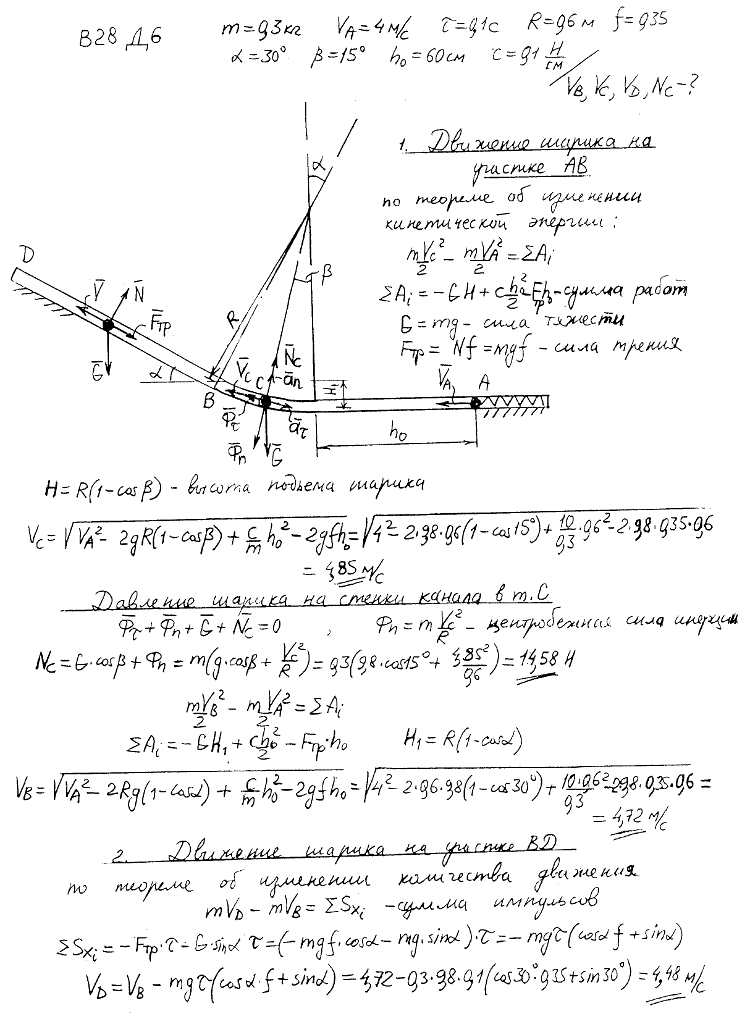 В28 Д6
m=0,3кг  V_A=4м/с  τ=0,1с  R=0,6м  f=0,35
α=30°  β=15°  h₀=60см  c=0,1 Н/см
V_B, V_C, V_D, N_C-?
1. Движение шарика на
участке АВ
по теореме об изменении
кинетической энергии:
mV_C²/2 - mV_A²/2 = ΣA_i
ΣA_i = -GH + ch₀²/2 - F_тр h₀ - сумма работ
G = mg - сила тяжести
F_тр = Nf = mgf - сила трения
α
β
D
V̄
N̄
F̄_тр
Ḡ
R
α
B
V̄_C
C
N̄_C
ā_n
Φ̄_τ
ā_τ
Φ̄_n
Ḡ
H
V̄_A
A
h₀
H = R(1-cosβ) - высота подъема шарика
V_C = √(V_A² - 2gR(1-cosβ) + c/m h₀² - 2gfh₀) = √(4² - 2·9,8·0,6(1-cos15°) + 10/0,3·0,6² - 2·9,8·0,35·0,6
= 4,85 м/с
Давление шарика на стенки канала в т.С
Φ̄_τ + Φ̄_n + Ḡ + N̄_C = 0 , Φ_n = m V_C²/R - центробежная сила инерции
N_C = G·cosβ + Φ_n = m(g·cosβ + V_C²/R) = 0,3(9,8·cos15° + 4,85²/0,6) = 14,58 Н
mV_B²/2 - mV_A²/2 = ΣA_i
ΣA_i = -GH₁ + ch₀²/2 - F_тр·h₀  H₁ = R(1-cosα)
V_B = √(V_A² - 2Rg(1-cosα) + c/m h₀² - 2gfh₀) = √(4² - 2·0,6·9,8(1-cos30°) + 10·0,6²/0,3 - 2·9,8·0,35·0,6 =
= 4,72 м/с
2. Движение шарика на участке BD
по теореме об изменении количества движения
mV_D - mV_B = ΣS_xi - сумма импульсов
ΣS_xi = -F_тр·τ - G·sinα τ = (-mgf·cosα - mg·sinα)·τ = -mgτ(cosα f + sinα)
V_D = V_B - mgτ(cosα·f + sinα) = 4,72 - 0,3·9,8·0,1(cos30°·0,35 + sin30°) = 4,48 м/с